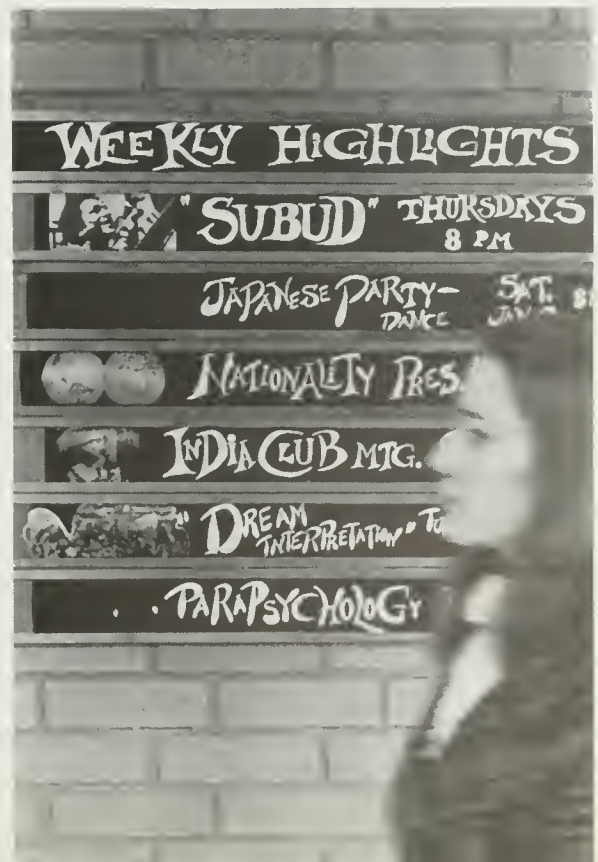 WEEKLY HIGHLIGHTS
"SUBUD" THURSDAYS
8 PM
JAPANESE PARTY- SAT.
DANCE JAN
NATIONALITY PRES.
INDIA CLUB MTG.
"DREAM
INTERPRETATION"
. . PARAPSYCHOLOGY